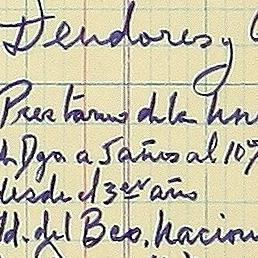 Deudores y
Prestamo de la
a 5 años al 10%
desde el 3er año
Id. del Bco. Nacion